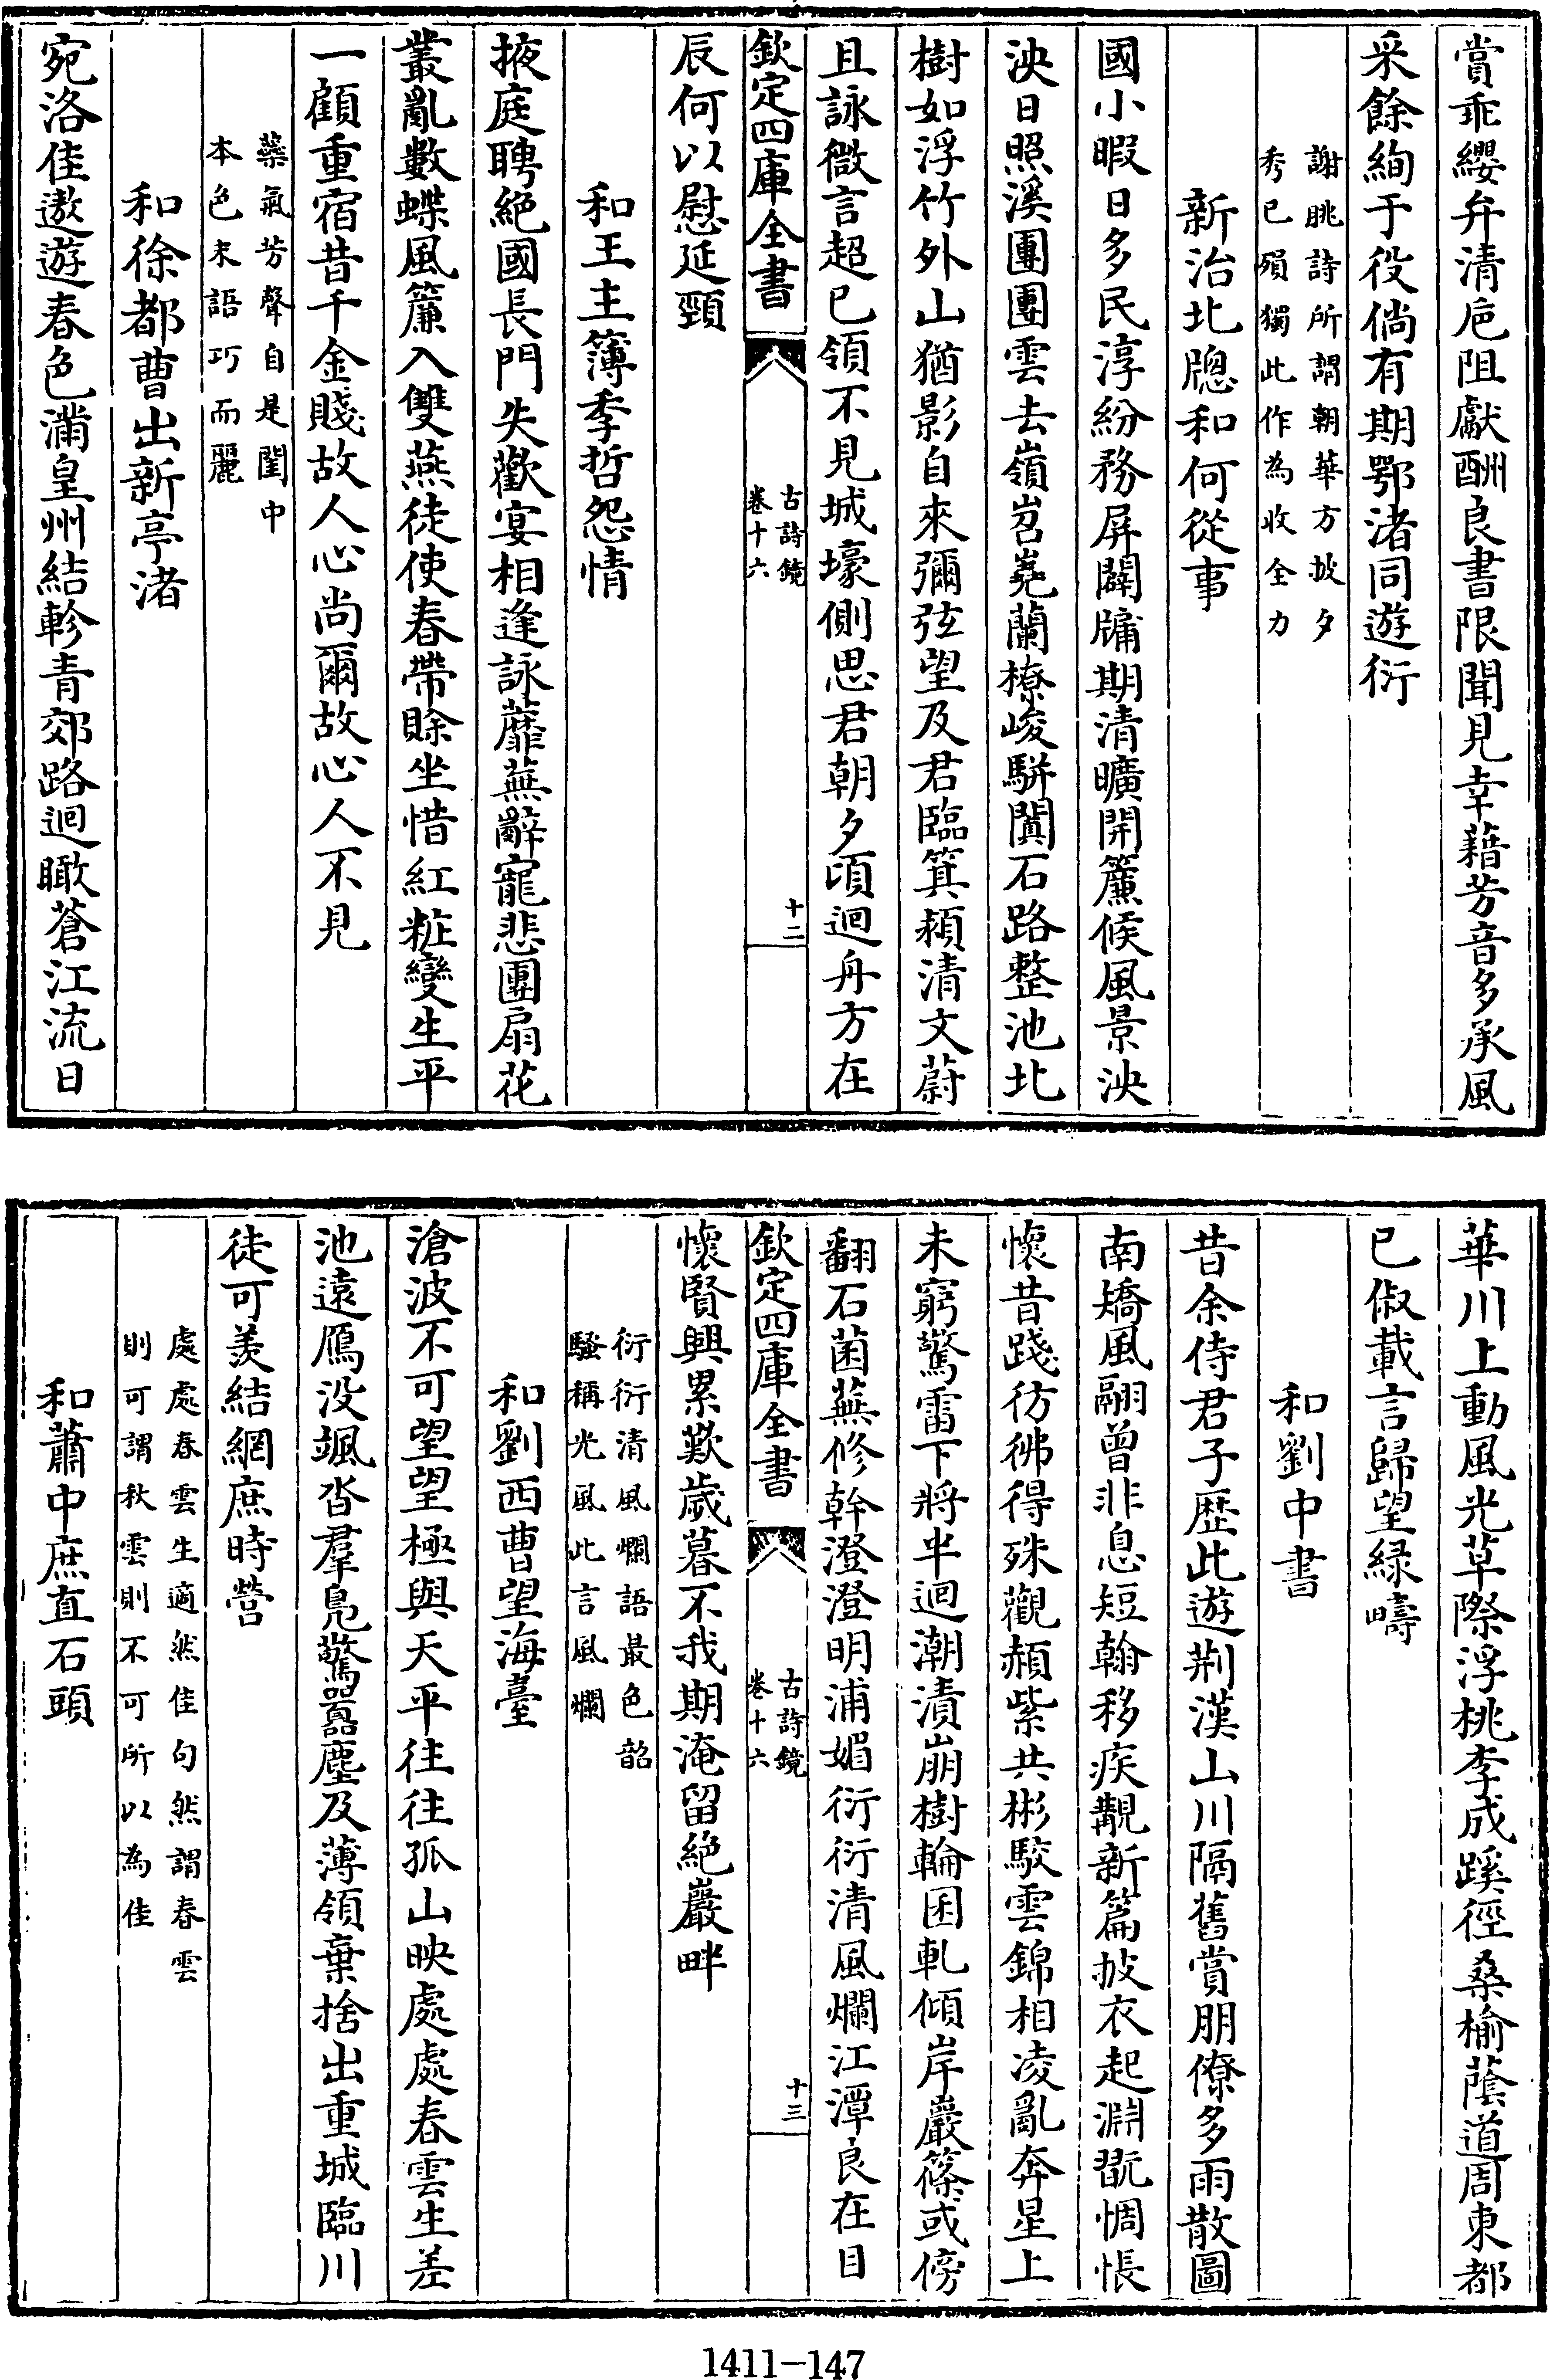 賞乖纓弁清巵阻獻酬良書限聞見幸藉芳音多承風
采餘絢于役倘有期鄂渚同遊衍
謝朓詩所謂朝華方披夕
秀已殞獨此作為收全力
新治北䆫和何從事
國小暇日多民淳紛務屏闢牖期清曠開簾候風景泱
泱日照溪團團雲去嶺岧嶤蘭橑峻駢闐石路整池北
樹如浮竹外山猶影自來彌弦望及君臨箕潁清文蔚
且詠微言超已領不見城壕側思君朝夕頃迴舟方在
欽定四庫全書
古詩鏡
卷十六
十二
辰何以慰延頸
和王主簿季哲怨情
掖庭聘絕國長門失歡宴相逢詠蘼蕪辭寵悲團扇花
叢亂數蝶風簾入雙燕徒使春帶賒坐惜紅粧變生平
一顧重宿昔千金賤故人心尚爾故心人不見
藻氣芳聲自是閨中
本色末語巧而麗
和徐都曹出新亭渚
宛洛佳遨遊春色滿皇州結軫青郊路迴瞰蒼江流日
華川上動風光草際浮桃李成蹊徑桑榆蔭道周東都
已俶載言歸望綠疇
和劉中書
昔余侍君子歷此遊荆漢山川隔舊賞朋僚多雨散圖
南矯風翮曾非息短翰移疾覯新篇披衣起淵翫惆悵
懷昔踐彷彿得殊觀赬紫共彬駮雲錦相凌亂奔星上
未窮驚雷下將半迴潮漬崩樹輪囷軋傾岸巖篠或傍
翻石菌蕪修幹澄澄明浦媚衍衍清風爛江潭良在目
欽定四庫全書
古詩鏡
卷十六
十三
懷賢興累歎歲暮不我期淹留絕巖畔
衍衍清風爛語最色韶
騷稱光風此言風爛
和劉西曹望海臺
滄波不可望望極與天平往往孤山映處處春雲生差
池遠鴈沒颯沓羣鳧驚囂塵及薄領棄捨出重城臨川
徒可羨結網庶時營
處處春雲生適然佳句然謂春雲
則可謂秋雲則不可所以為佳
和蕭中庶直石頭
1411-147